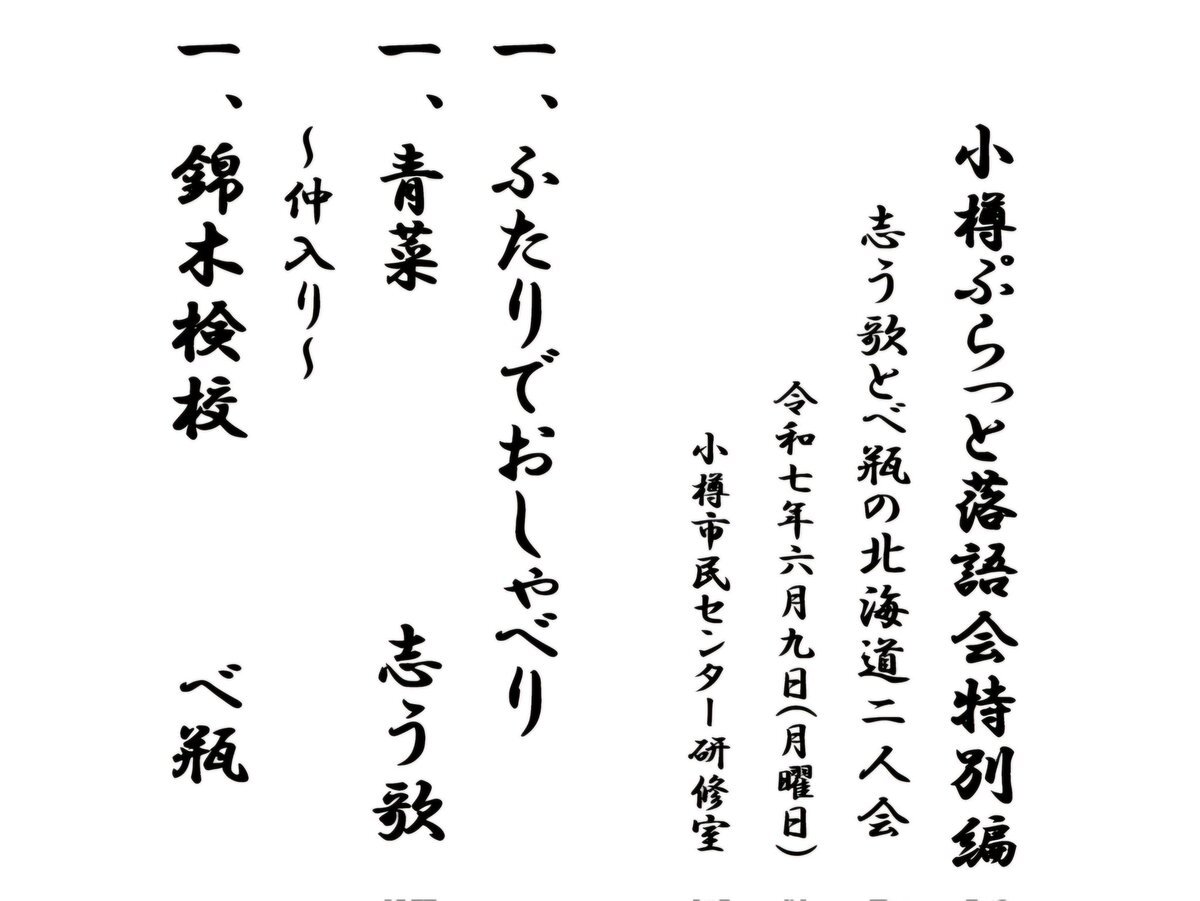 小樽ぷらっと落語会特別編
志う歌とべ瓶の北海道二人会
令和七年六月九日(月曜日)
小樽市民センター研修室
一、ふたりでおしゃべり
一、青菜 志う歌
～仲入り～
一、錦木検校 べ瓶